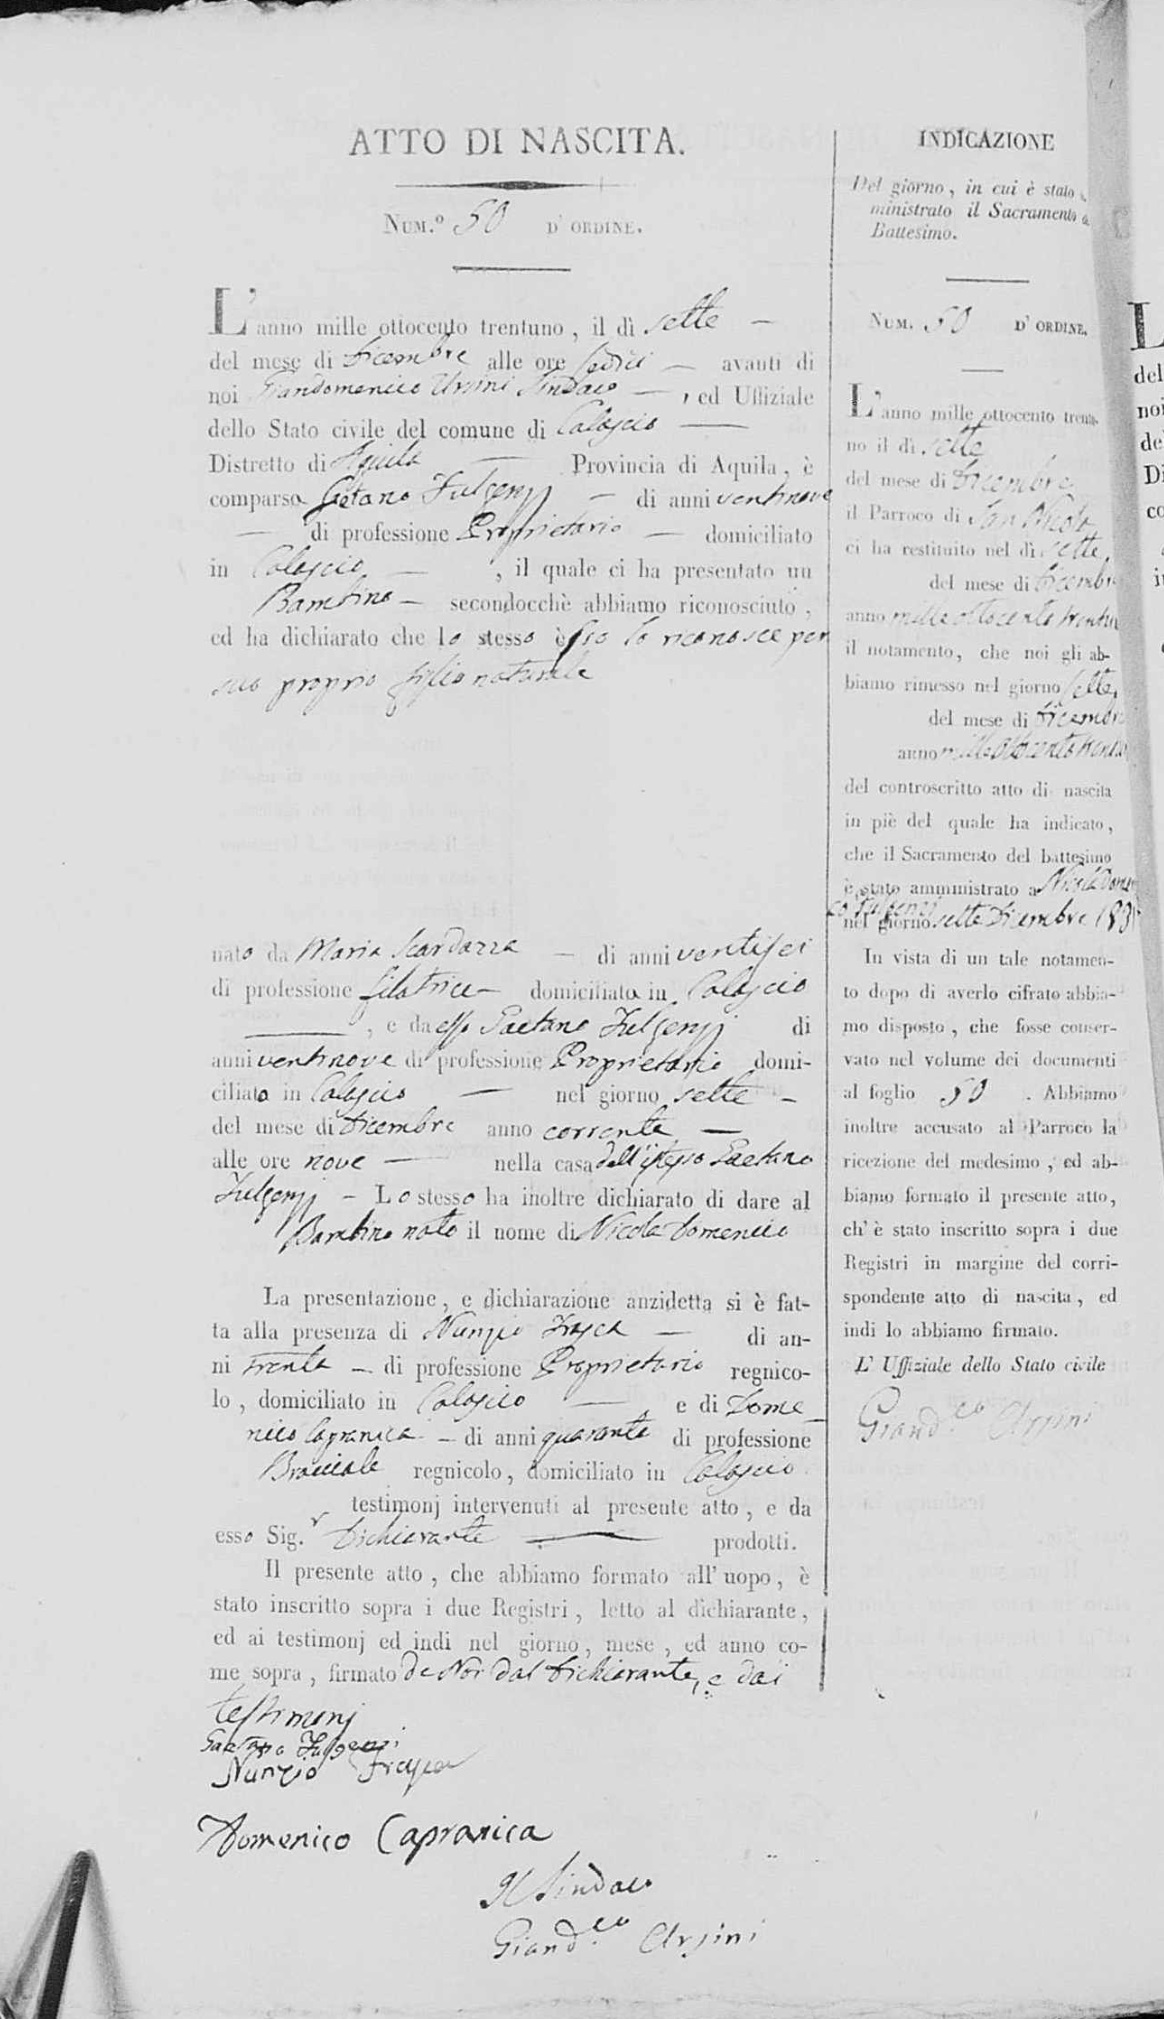 ATTO DI NASCITA.
NUM.º 50 D' ORDINE.
L'anno mille ottocento trentuno, il dì sette
del mese di Dicembre alle ore sedici avanti di
noi Giandomenico Ursini Sindaco, ed Uffiziale
dello Stato civile del comune di Calascio
Distretto di Aquila Provincia di Aquila, è
comparso Gaetano Fulgenzj di anni ventinove
di professione Proprietario domiciliato
in Calascio, il quale ci ha presentato un
Bambino secondocchè abbiamo riconosciuto,
ed ha dichiarato che lo stesso è lo riconosce per
suo proprio figlio naturale
nato da Maria Scardazza di anni ventisei
di professione filatrice domiciliata in Calascio
, e da esso Gaetano Fulgenzj di
anni ventinove di professione Proprietario domi-
ciliato in Calascio nel giorno sette
del mese di Dicembre anno corrente
alle ore nove nella casa dell'istesso Gaetano
Fulgenzj Lo stesso ha inoltre dichiarato di dare al
Bambino nato il nome di Nicola Domenico
La presentazione, e dichiarazione anzidetta si è fat-
ta alla presenza di Nunzio Frasca di an-
ni trenta di professione Proprietario regnico-
lo, domiciliato in Calascio e di Dome
nico Capranica di anni quaranta di professione
Bracciale regnicolo, domiciliato in Calascio
testimonj intervenuti al presente atto, e da
esso Sig.r Dichiarante prodotti.
Il presente atto, che abbiamo formato all' uopo, è
stato inscritto sopra i due Registri, letto al dichiarante,
ed ai testimonj ed indi nel giorno, mese, ed anno co-
me sopra, firmato da Noi dal Dichiarante, e dai
testimonj
Gaetano Fulgenzi
Nunzio Frasca
Domenico Capranica
Il Sindaco
Giand.co Ursini
INDICAZIONE
Del giorno, in cui è stato
ministrato il Sacramento
Battesimo.
NUM. 50 D' ORDINE.
L'anno mille ottocento trentu-
no il dì sette
del mese di Dicembre
il Parroco di San Nicola
ci ha restituito nel dì sette
del mese di Dicembre
anno mille ottocento trentuno
il notamento, che noi gli ab-
biamo rimesso nel giorno sette
del mese di Dicembre
anno mille ottocento trentuno
del controscritto atto di nascita
in piè del quale ha indicato,
che il Sacramento del battesimo
è stato amministrato a Nicola Domeni
co Fulgenzi
nel giorno sette Dicembre 1831
In vista di un tale notamen-
to dopo di averlo cifrato abbia-
mo disposto, che fosse conser-
vato nel volume dei documenti
al foglio 50. Abbiamo
inoltre accusato al Parroco la
ricezione del medesimo, ed ab-
biamo formato il presente atto,
ch' è stato inscritto sopra i due
Registri in margine del corri-
spondente atto di nascita, ed
indi lo abbiamo firmato.
L' Uffiziale dello Stato civile
Giand.co Ursini